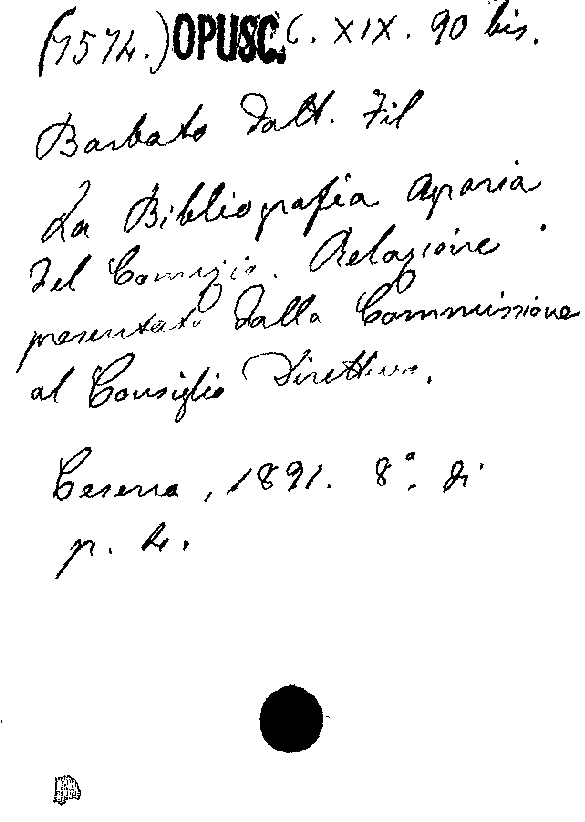 (7574.) OPUSC. C. XIX. 90 bis.
Barbato Dott. Fil
La Bibliografia Agraria
del Comizio. Relazione
presentata dalla Commissione
al Consiglio Direttivo.
Cesena, 1891. 8º. di
p. 4.